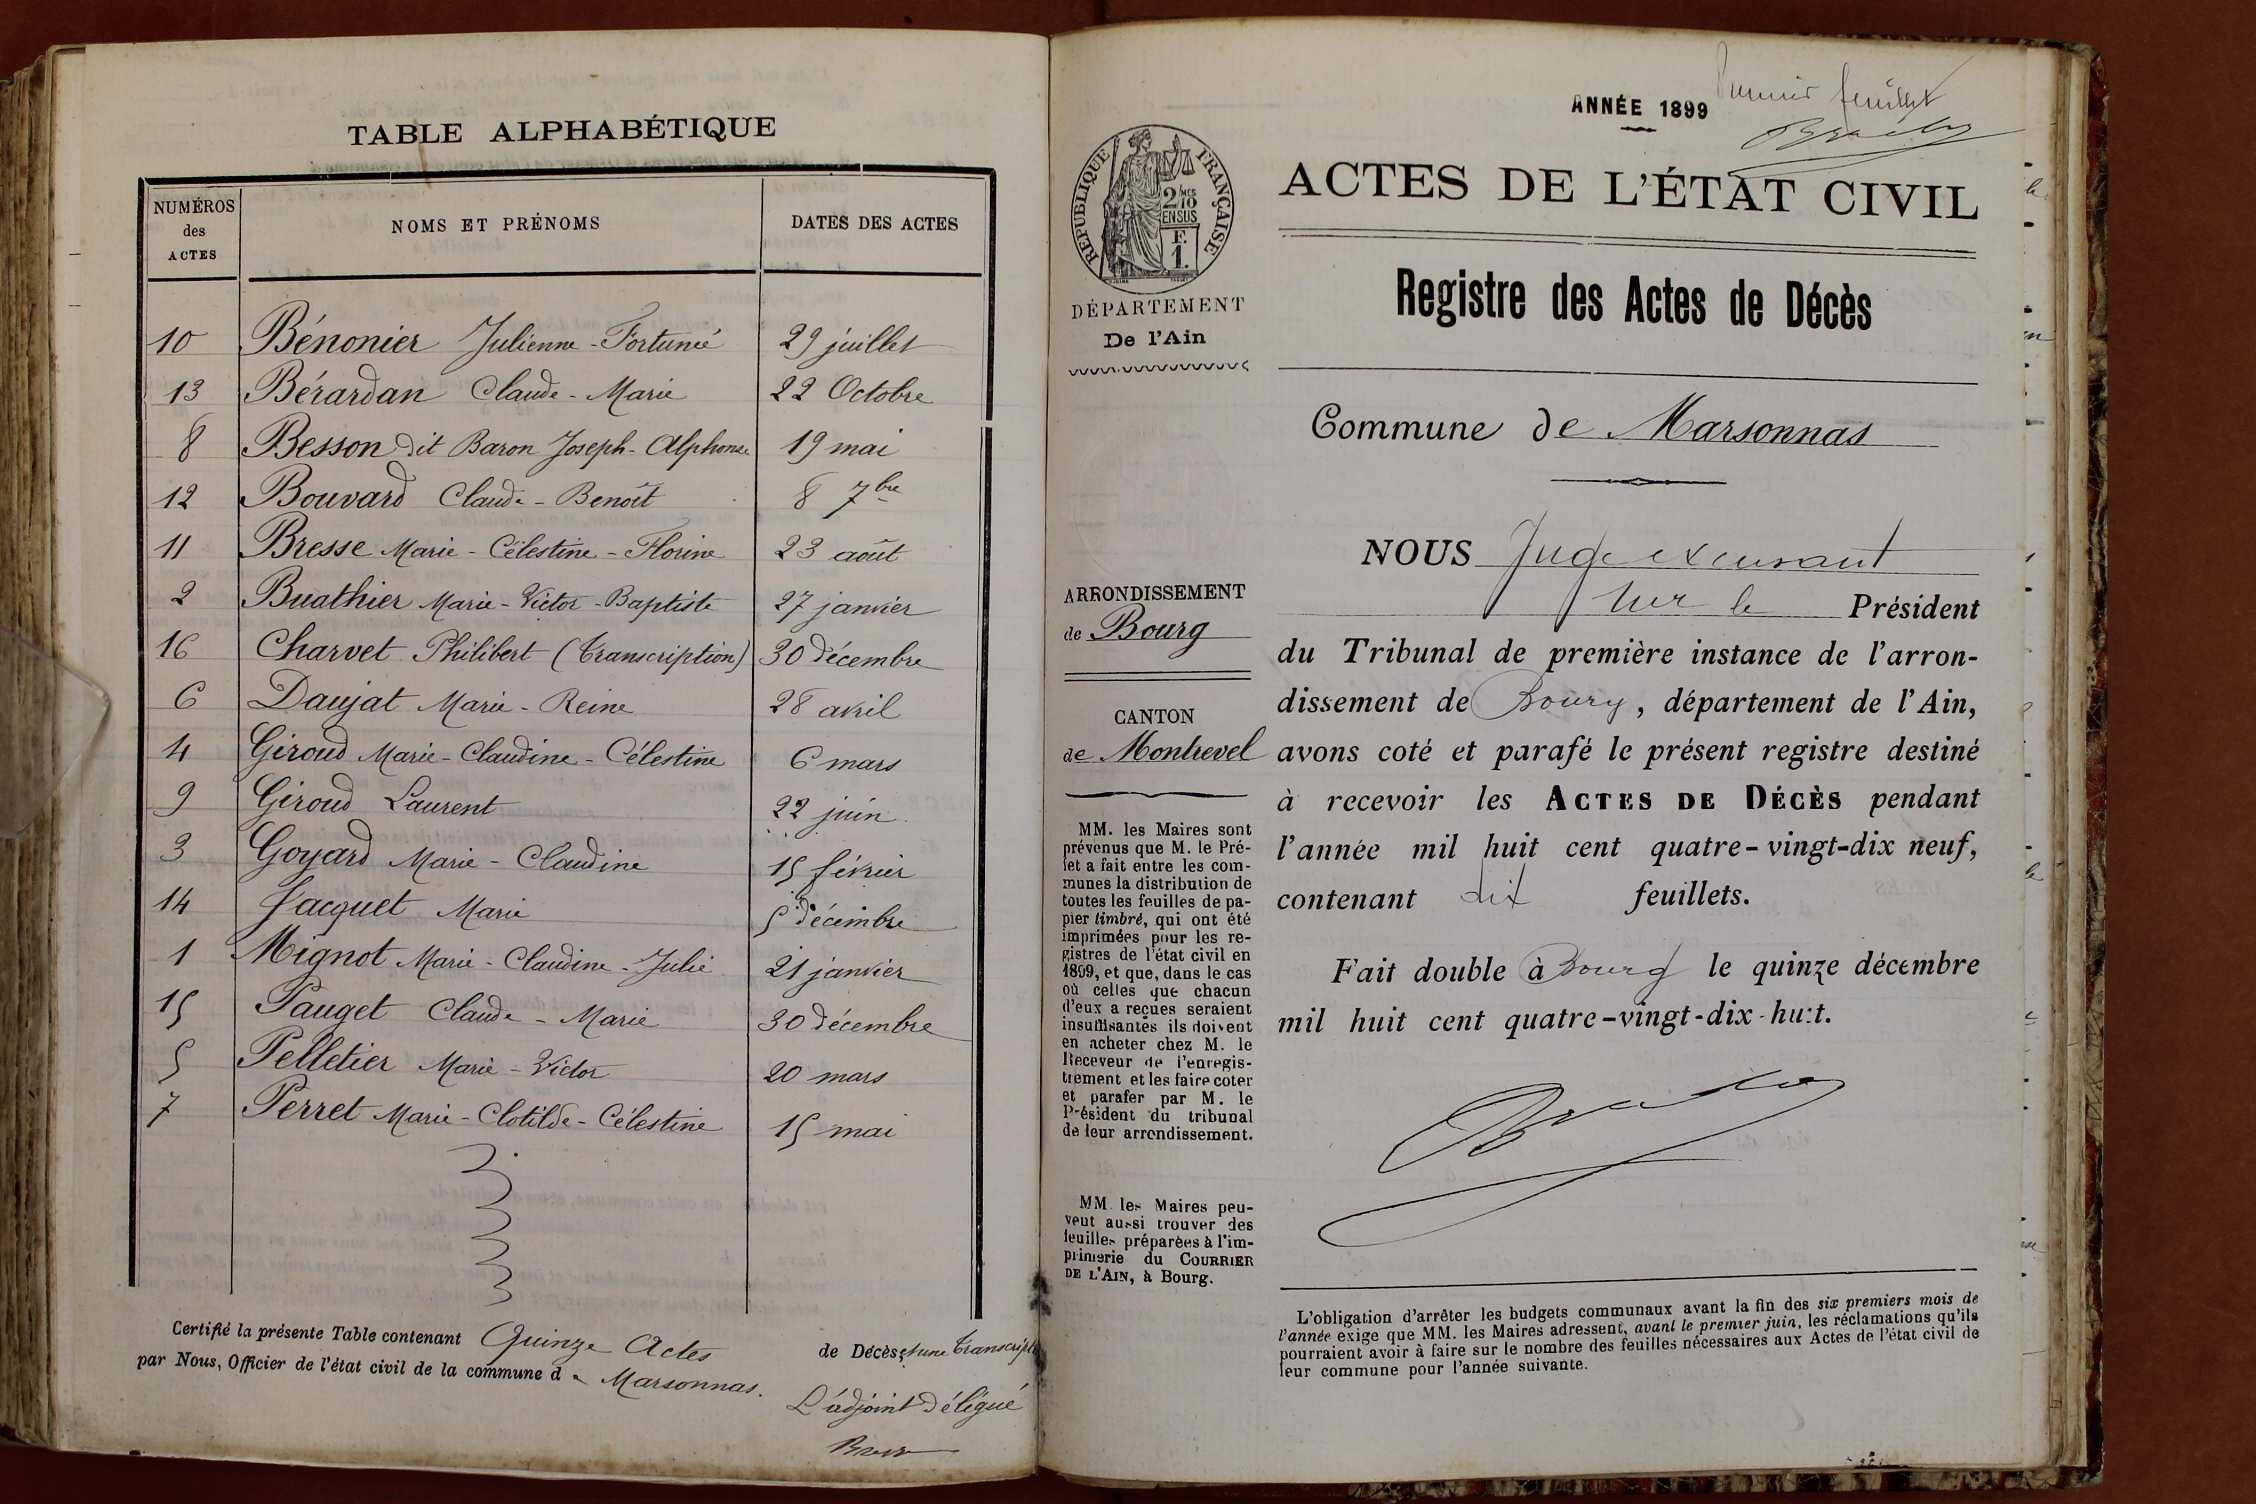 TABLE ALPHABÉTIQUE
NUMÉROS des ACTES
NOMS ET PRÉNOMS
DATES DES ACTES
10 Bénonier Julienne-Fortunée 29 juillet
13 Bérardan Claude-Marie 22 Octobre
8 Besson dit Baron Joseph-Alphonse 19 mai
12 Bouvard Claude-Benoît 8 7bre
11 Bresse Marie-Célestine-Florine 23 août
2 Buathier Marie-Victor-Baptiste 27 janvier
16 Charvet Philibert (Transcription) 30 décembre
6 Daujat Marie-Reine 28 avril
4 Giroud Marie-Claudine-Célestine 6 mars
9 Giroud Laurent 22 juin
3 Goyard Marie-Claudine 15 février
14 Jacquet Marie 5 décembre
1 Mignot Marie-Claudine-Julie 21 janvier
15 Pauget Claude-Marie 30 décembre
5 Pelletier Marie-Victor 20 mars
7 Perret Marie-Clotilde-Célestine 15 mai
Certifié la présente Table contenant Quinze Actes de Décès et une transcript
par Nous, Officier de l'état civil de la commune de Marsonnas.
L'adjoint délégué
ANNÉE 1899
Premier feuillet
RÉPUBLIQUE FRANÇAISE
2/10 EN SUS
F.
1.
ACTES DE L'ÉTAT CIVIL
DÉPARTEMENT
De l'Ain
Registre des Actes de Décès
Commune de Marsonnas
ARRONDISSEMENT
de Bourg
CANTON
de Montrevel
MM. les Maires sont
prévenus que M. le Pré-
fet a fait entre les com-
munes la distribution de
toutes les feuilles de pa-
pier timbré, qui ont été
imprimées pour les re-
gistres de l'état civil en
1899, et que, dans le cas
où celles que chacun
d'eux a reçues seraient
insuffisantes ils doivent
en acheter chez M. le
Receveur de l'enregis-
trement et les faire coter
et parafer par M. le
Président du tribunal
de leur arrondissement.
MM. les Maires peu-
vent aussi trouver des
feuilles préparées à l'im-
primerie du COURRIER
DE L'AIN, à Bourg.
NOUS Juge
le Président
du Tribunal de première instance de l'arron-
dissement de Bourg, département de l'Ain,
avons coté et parafé le présent registre destiné
à recevoir les ACTES DE DÉCÈS pendant
l'année mil huit cent quatre-vingt-dix neuf,
contenant dix feuillets.
Fait double à Bourg le quinze décembre
mil huit cent quatre-vingt-dix-huit.
L'obligation d'arrêter les budgets communaux avant la fin des six premiers mois de
l'année exige que MM. les Maires adressent, avant le premier juin, les réclamations qu'ils
pourraient avoir à faire sur le nombre des feuilles nécessaires aux Actes de l'état civil de
leur commune pour l'année suivante.